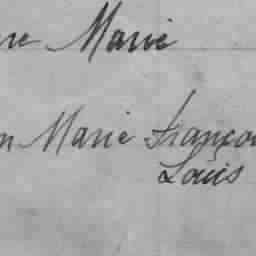 re Marie
n Marie Françoi
Louis